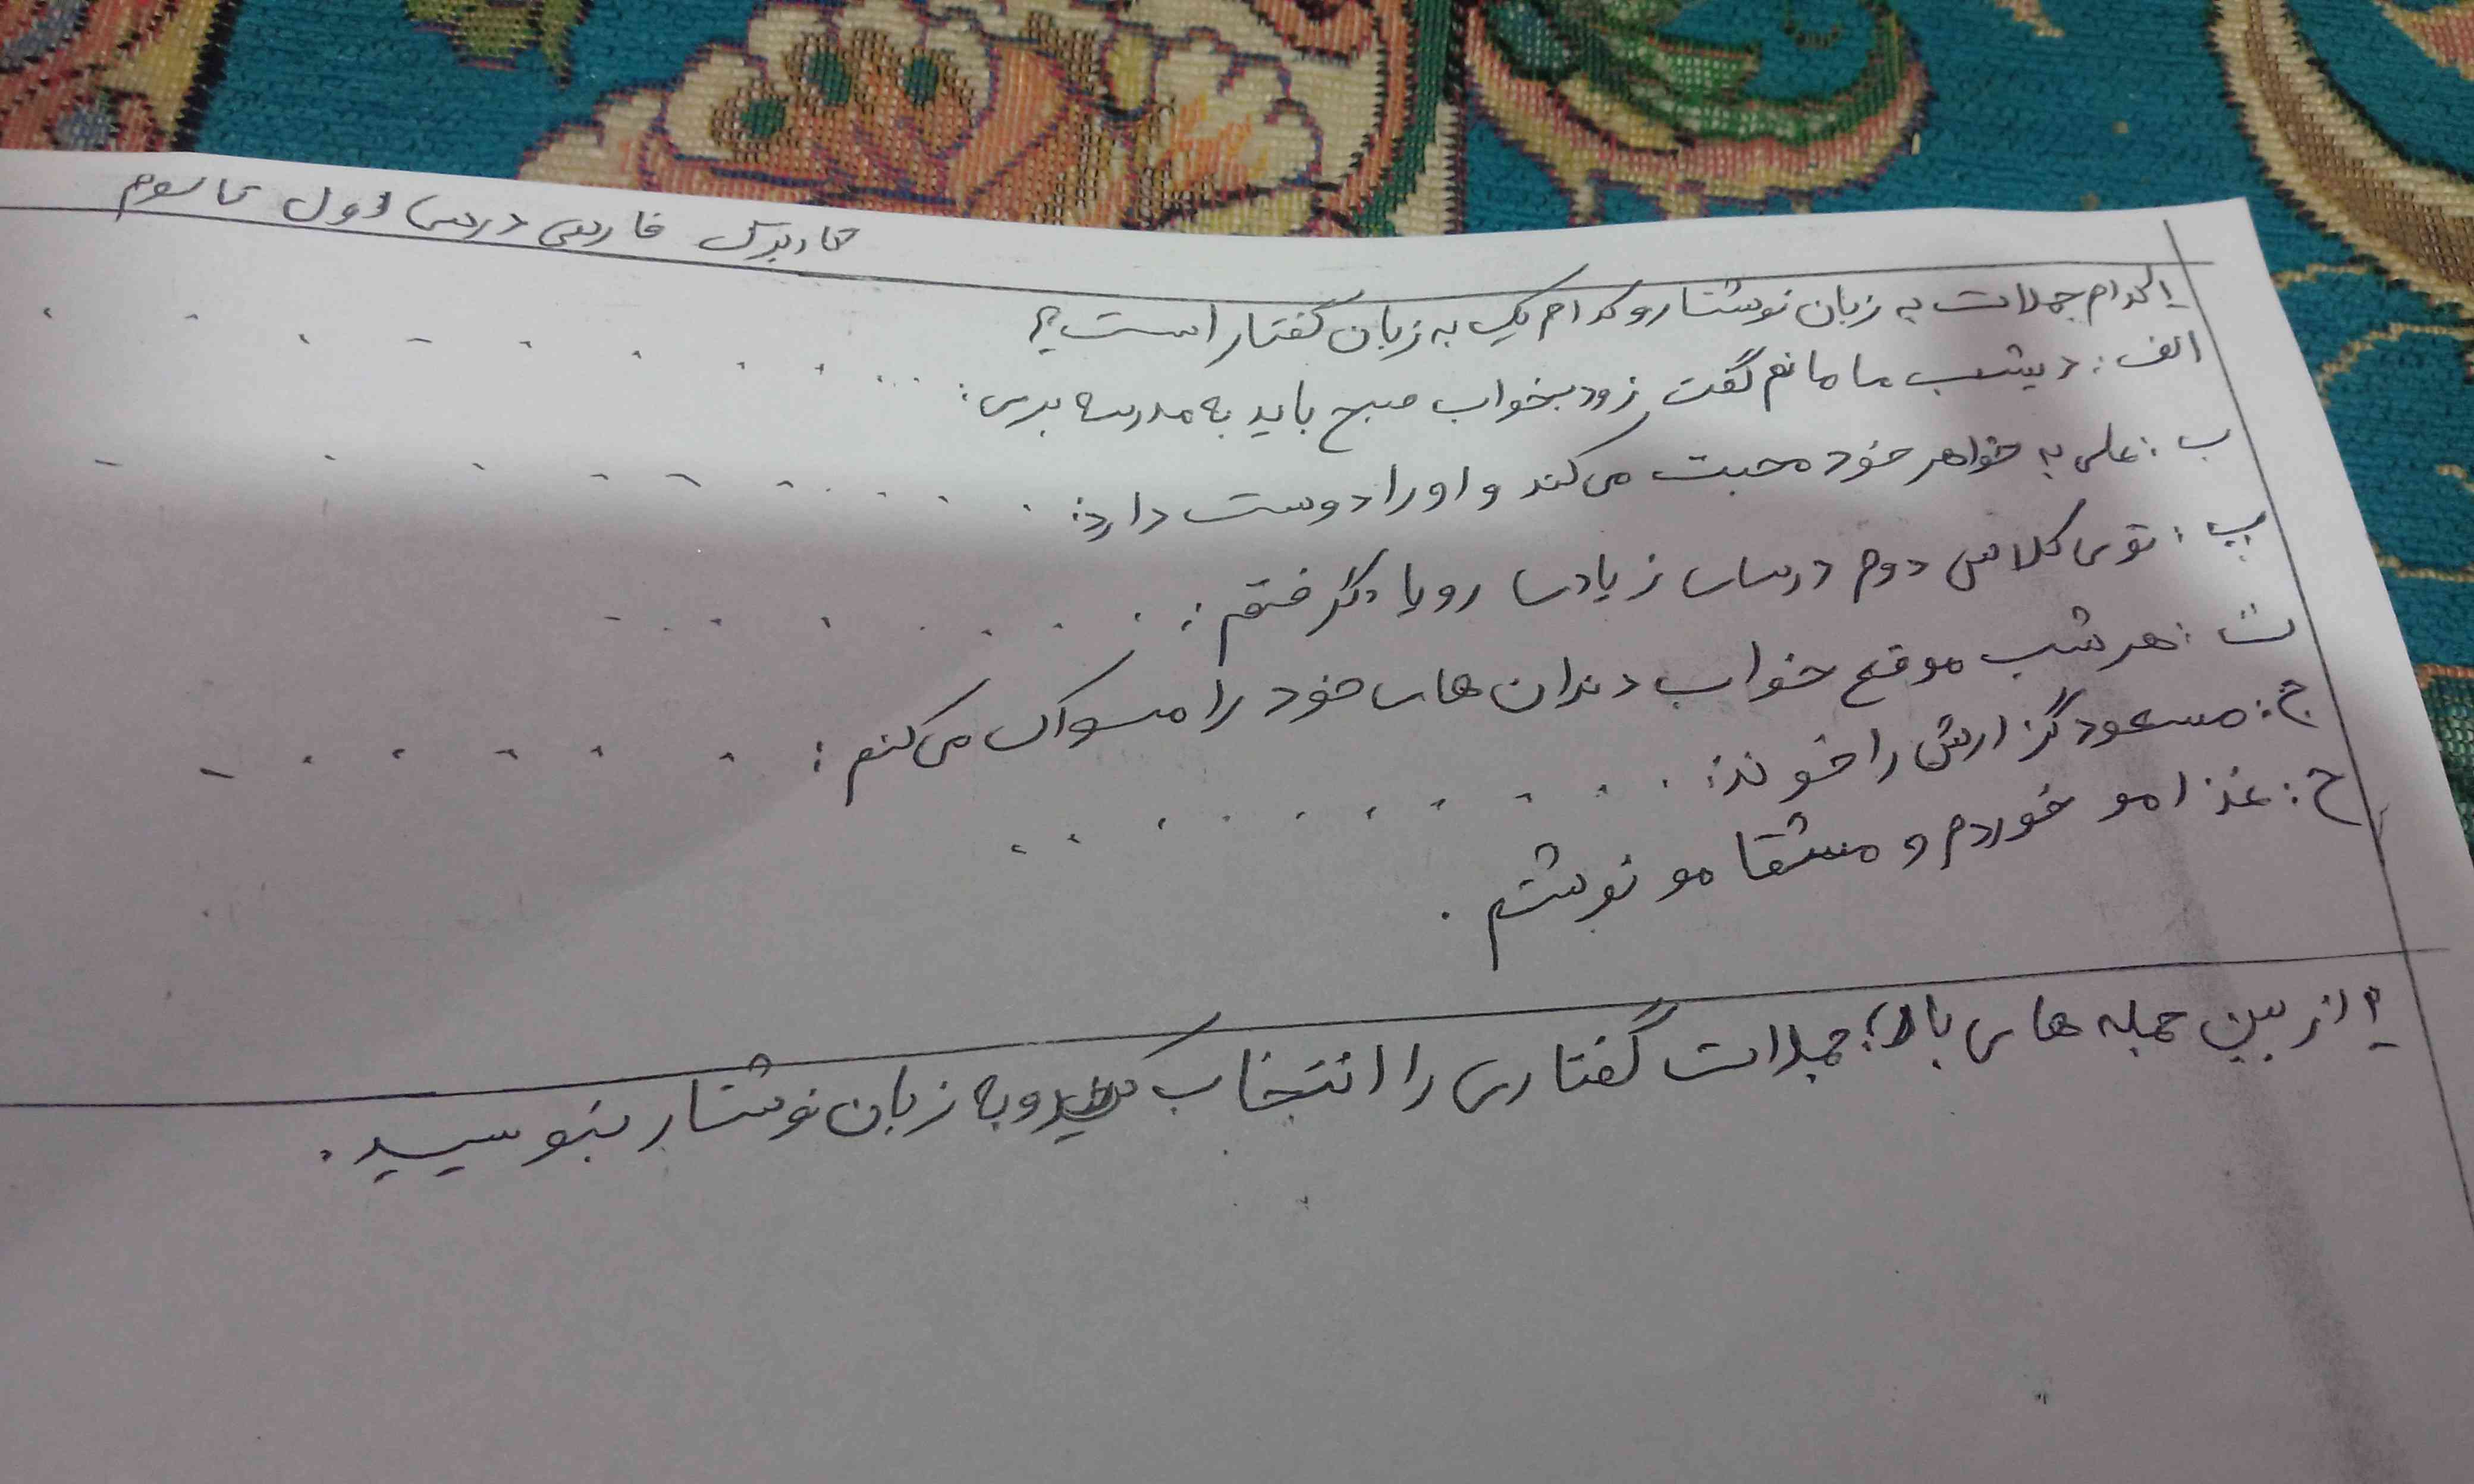 کاربرگ فارسی درس اول تا سوم
۱_ کدام جملات به زبان نوشتار و کدام یک به زبان گفتار است؟
الف: دیشب مامانم گفت زود بخواب صبح باید به مدرسه برسی:
ب: علی به خواهر خود محبت می‌کند و او را دوست دارد:
پ: توی کلاس دوم درسای زیادی رو یاد گرفتم:
ت: هر شب موقع خواب دندان های خود را مسواک می‌کنم:
ج: مسعود گزارش را خوند:
ح: غذامو خوردم و مشقامو نوشتم.
۲_ از بین جمله های بالا؛ جملات گفتاری را انتخاب کنید و به زبان نوشتار بنویسید.